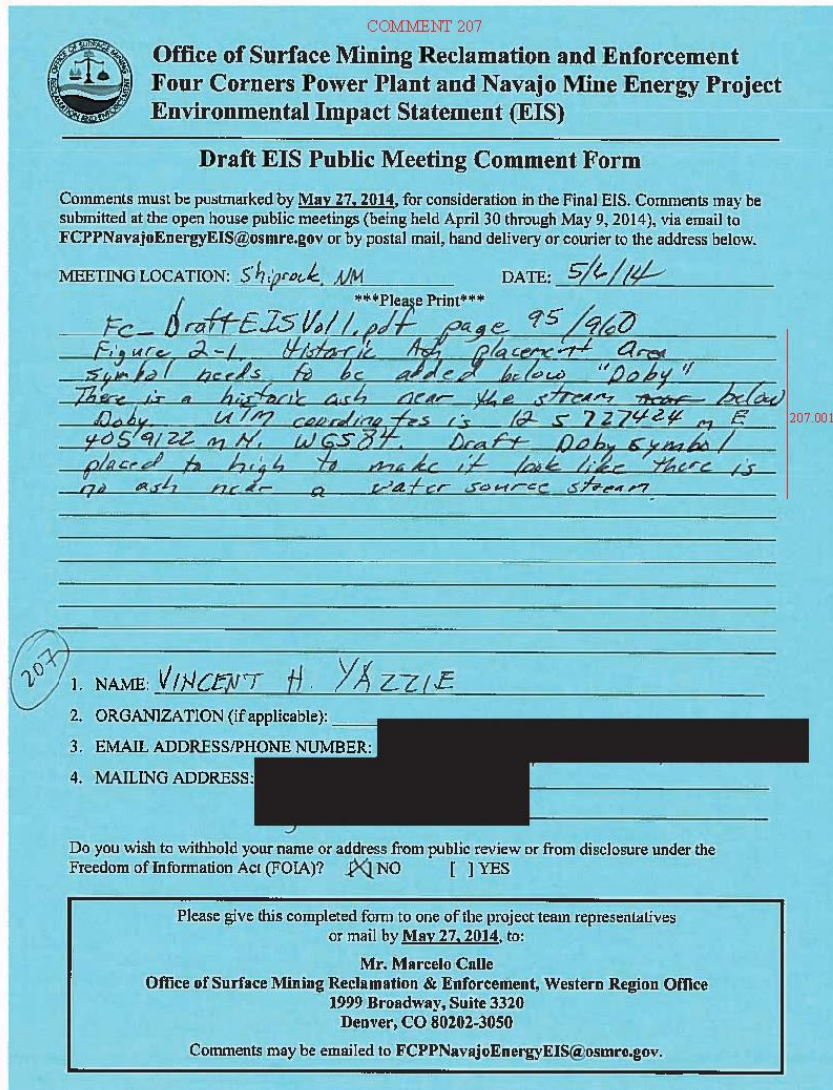 COMMENT 207
Office of Surface Mining Reclamation and Enforcement
Four Corners Power Plant and Navajo Mine Energy Project
Environmental Impact Statement (EIS)
Draft EIS Public Meeting Comment Form
Comments must be postmarked by May 27, 2014, for consideration in the Final EIS. Comments may be
submitted at the open house public meetings (being held April 30 through May 9, 2014), via email to
FCPPNavajoEnergyEIS@osmre.gov or by postal mail, hand delivery or courier to the address below.
MEETING LOCATION: Shiprock, NM DATE: 5/6/14
***Please Print***
Fc_DraftEISVol1.pdf page 95/960
Figure 2-1. Historic Ash placement Area
symbol needs to be added below "Doby"
There is a historic ash near the stream near below
Doby. UTM coordinates is 12 S 727424 m E
4059122 m N. WGS84. Draft Doby symbol
placed to high to make it look like there is
no ash near a water source stream.
207.001
207
1. NAME: VINCENT H. YAZZIE
2. ORGANIZATION (if applicable):
3. EMAIL ADDRESS/PHONE NUMBER:
4. MAILING ADDRESS:
Do you wish to withhold your name or address from public review or from disclosure under the
Freedom of Information Act (FOIA)? [X] NO [ ] YES
Please give this completed form to one of the project team representatives
or mail by May 27, 2014, to:
Mr. Marcelo Calle
Office of Surface Mining Reclamation & Enforcement, Western Region Office
1999 Broadway, Suite 3320
Denver, CO 80202-3050
Comments may be emailed to FCPPNavajoEnergyEIS@osmre.gov.